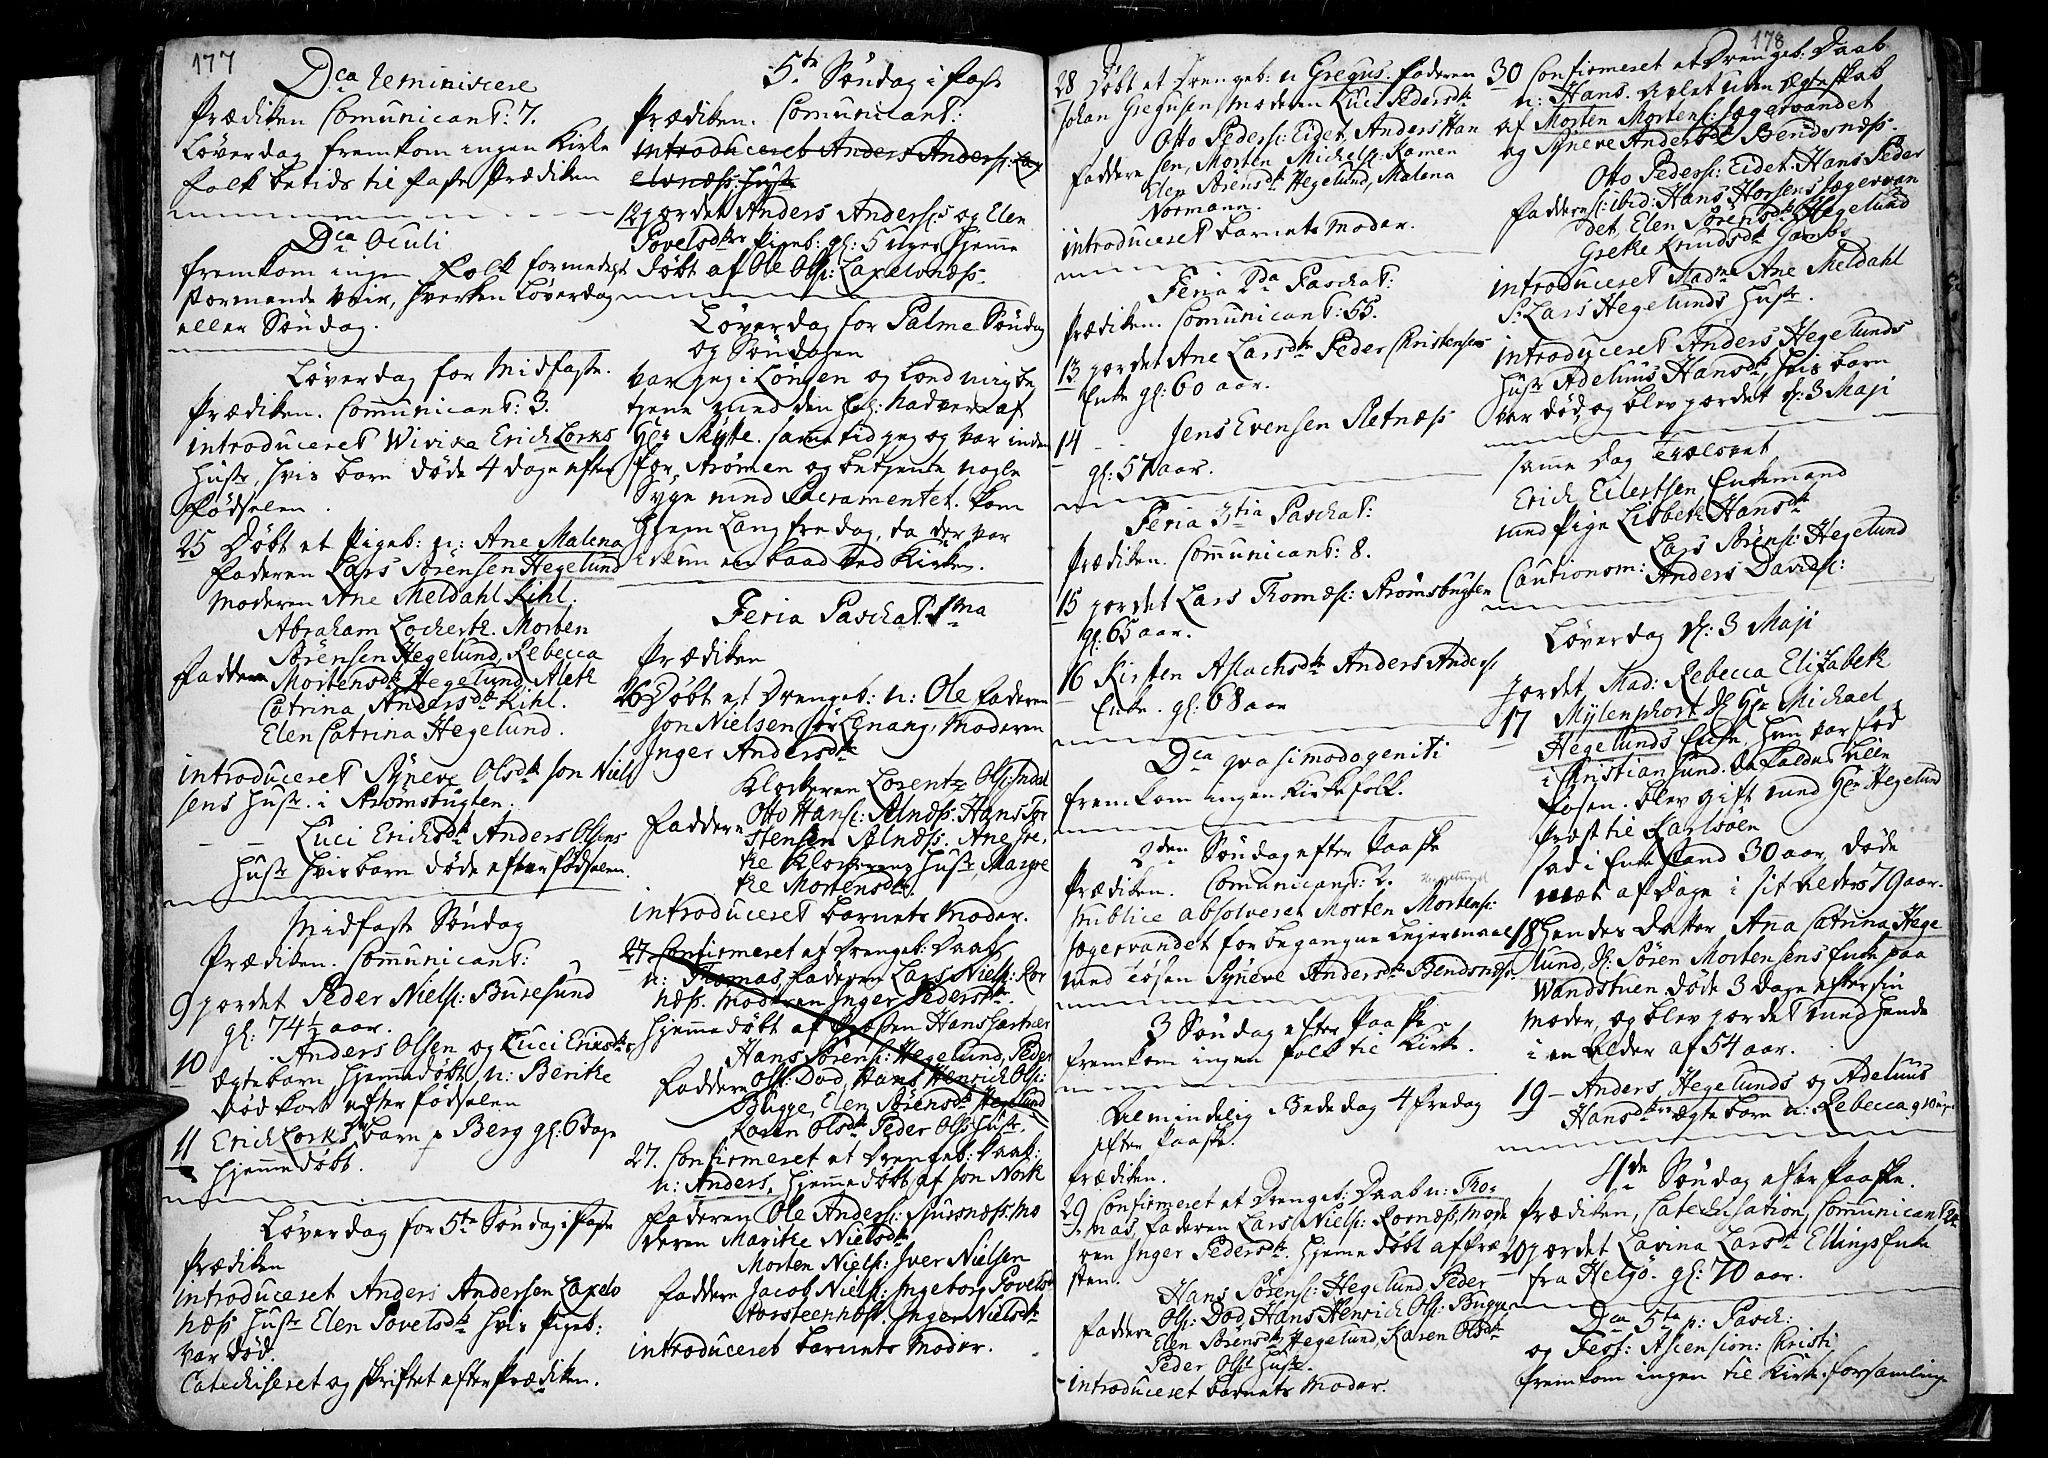 177
Dca Reminiscere
Prædiken Comunicant: 7.
Løverdag fremkom ingen Kirke
folk betids til faste Prædiken
Dca Oculi
fremkom ingen Folk formedelst
stormende Veir, hverken Løverdag
eller Søndag.
Løverdag for Midfaste.
Prædiken. Communicant: 3.
introduceret Wivika Erich Lorks
Hustr, hvis barn døde 4 dage efter
fødselen.
25 Døbt et Pigeb: n: Ane Malena
faderen Lars Sørensen Hegelund
moderen Ane Meldahl Kihl.
Abraham Lockertz. Morten
Sørensen Hegelund, Rebecca
Faddere Mortensdtr Hegelund, Aleth
Catrina Andersdtr Kihl.
Elen Catrina Hegelund.
introduceret Syneve Olsdtr Jon Niel
sens Hustr. i Strømsbugten.
- - Luci Erichsdtr Anders Olsens
Hustr hvis barn døde efter fødselen.
Midfaste Søndag
Prædiken. Communicant:
9 jordet Peder Niels: Buresund
gl: 74½ aar.
10 Anders Olsen og Luci Erichsdtrs
ægte barn hjemmedøbt n: Benthe
død kort efter fødselen
11 Erich Lorks barn p Berg gl: 6 dage
hjemmedøbt.
Løverdag for 5te Søndag i Faste
Prædiken
introduceret Anders Andersen Laxelv
næss Hustr Elen Povelsdtr hvis pigeb:
var død.
Catechiseret og skriftet efter Prædiken.
5te Søndag i faste
Prædiken. Comunicant:
introduceret Anders Anders: Lax
elvnæss: Hustr
12 jordet Anders Anderss og Elen
Povelsdtrs Pigeb: gl: 5 uger hjemme
døbt af Ole Ols: Laxelvnæss.
Løverdag for Palme Søndag
og Søndagen
var jeg i Lønsen og lond mig be
tjene med den hel: Nadvere af
Hr Skytte. samme tid jeg og var inden
for Strømen og betjente nogle
Syge med Sacramentet. kom
hjem Langfredag, da der var
ickun en baad ved Kirken.
Feria Paschat. 1ma
Prædiken
26 Døbt et Drengeb: n: Ole faderen
Jon Nielsen sør Lenang, moderen
Inger Andersdtr
Klockeren Lorentz Ols: Indal
Faddere Otto Hans: Selnæss: Hans Tor
stensen Selnæss. Ane Gre,
the Klockerens Hustr Margre
the Mortensdtr.
introduceret barnets Moder.
27. Confirmeret et Drengeb: Daab
n: Thomas, faderen Lars Niels: Kor
næss. Moderen Inger Pedersdtr.
hjemmedøbt af Præsten Hans Hartner
Hans Sørens: Hegelund, Peder
Faddere Ols: Dod, Hans Henrich Ols:
Bugge, Elen Sørensdtr Hegelund
Karen Olsdtr Peder Ols: Hustr.
27. Confirmeret et Drengeb: Daab:
n: Anders, hjemmedøbt af Jon North
Faderen Ole Anders: Sjursnæss: Mo
deren Marithe Nielsdtr
Morten Niels: Iver Nielsen
Faddere Jacob Niels: Ingeborg Povelsd
Horsteenhoss. Inger Nielsdtr
introduceret barnets Moder.
178
28 Døbt et Drengeb: n Gregus. Faderen
Johan Gregusen, moderen Luci Pedersdtr
Otto Peders: Eidet. Anders Han
Faddere sen, Morten Michels: Kamen
Elen Sørensdtr Hegelund, Malena
Normann.
introduceret barnets Moder.
Feria 2da Paschat:
Prædiken. Communicant: 55.
13 jordet Ane Larsdtr Peder Christensens
Enke gl: 60 aar.
14 - Jens Evensen Sletnæss
gl: 57 aar.
Feria 3tia Paschat:
Prædiken. Communicant: 8.
15 jordet Lars Thomæs: Strømsbugten
gl: 65 aar.
16 Kirsten Aslachsdtr Anders Anders:
Enke. gl: 68 aar
Dca qvasimodogeniti
fremkom ingen Kirkefolk.
2den Søndag efter Paaske
Prædiken. Comunicant: 2.
publice absolveret Morten Mortens:
Jægervandet for begangne Lejermaal
med Tøsen Syneve Andersdtr Bendsnæss.
3 Søndag efter Paaske
fremkom ingen folk til Kirke.
Almindelig Bededag 4 fredag
efter Paaske.
Prædiken.
29 Confirmeret et Drengeb: Daab n: Tho-
mas, faderen Lars Niels: Kornæss, Mode
ren Inger Pedersdtr. hjemmedøbt af Præ
sten.
Hans Sørens: Hegelund, Peder
Faddere Ols: Dod, Hans Henrich Ols: Bugge
Elen Sørensdtr Hegelund, Karen Olsdtr
Peder Ols: Hustr.
introduceret barnets Moder.
30 Confirmeret et Drengeb: Daab
n: Hans. Avlet uden Ægteskab
af Morten Mortens: Jægervandet
og Syneve Andersdtr Bendsnæss.
Otto Peders: Eidet: Hans Peder
Faddere s: ibid: Hans Horsens Jægervan
det, Elen Sørensdtr Hegelund
Grethe Knudsdtr Gambs
introduceret Madme Ane Meldahl
Sr Lars Hegelunds Hustr.
introduceret Anders Hegelunds
Hustr Adeluus Hansdtr, hvis barn
var død, og blev jordet d: 3 Maji
samme dag Trolovet
Erich Eilertsen Enkemand
med Pige Lisbeth Hansdtr
Lars Sørens: Hegelund
Cautionom: Anders Davids:
Løverdag d: 3 Maji
jordet Mad: Rebecca Elizabeth
17 Mylenphort S: Hr Michael
Hegelunds Enke. Hun var fød
i Christiansund. da kaldes Lille
Fosen. blev gift med Hr Hegelund
Præst til Karlsøen
sad i Enkestand 30 aar, døde
mæt af Dage i sit alders 79 aar.
18 Hendes Datter Anna Catrina Hege
lund, S: Søren Mortensens Enke paa
Wandstuen døde 3 dage efter sin
Moder, og blev jordet med hende
i en alder af 54 aar.
19 - Anders Hegelunds og Adeluus
Hansdtrs ægte barn n: Rebecca
4de Søndag efter Paaske.
Prædiken, Catechisation, Comunicant 24
20 jordet Lavina Larsdtr Ellings Enke
fra Helgø. gl: 70 aar.
Dca 5ta p: Pasch:
og Fest: Ascension: Christi
fremkom ingen til Kirke forsamling